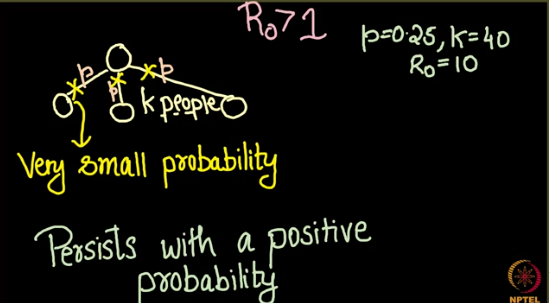 R₀>1
p=0.25, k=40
R₀=10
p
p
p
k people
Very small probability
Persists with a positive
probability
NPTEL